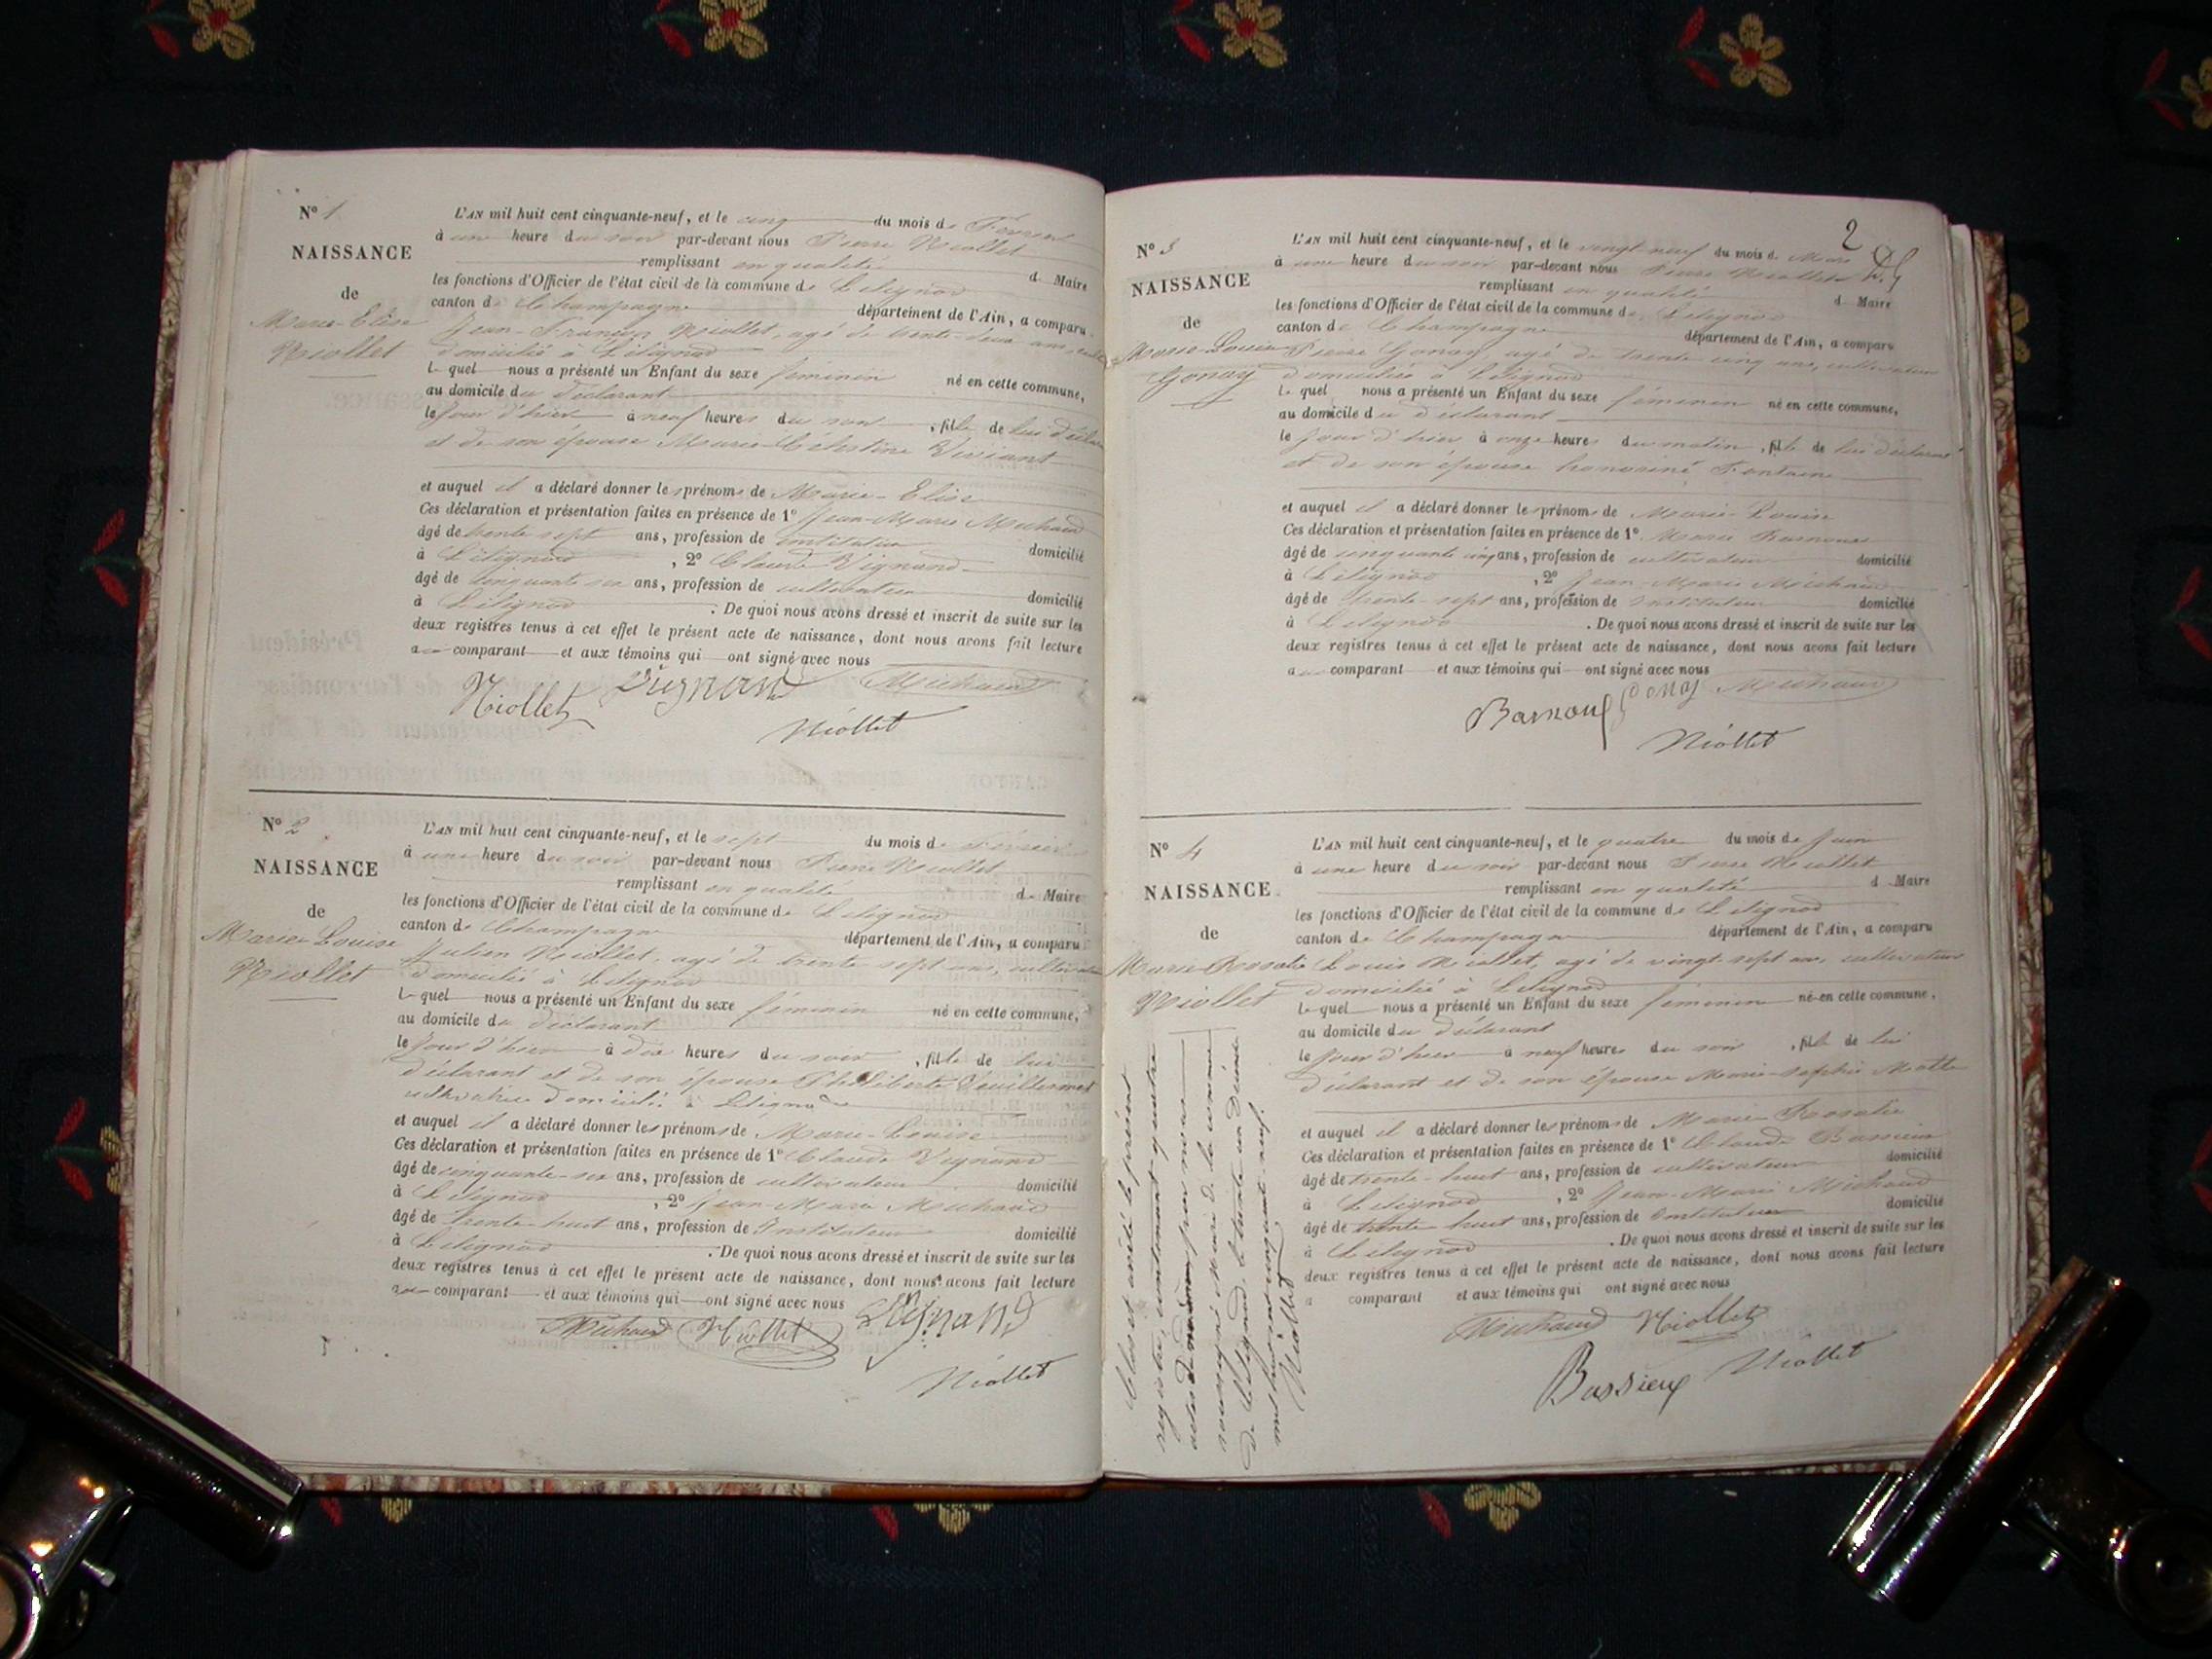 N° 1
NAISSANCE
de
Marie-Elise
Niollet
L'AN mil huit cent cinquante-neuf, et le cinq du mois de Février
à une heure du soir par-devant nous Pierre Niollet
remplissant en qualité de Maire
les fonctions d'Officier de l'état civil de la commune de Lilignod
canton de Champagne département de l'Ain, a comparu
Jean-François Niollet, agé de trente-deux ans,
domicilié à Lilignod
Lequel nous a présenté un Enfant du sexe féminin né en cette commune,
au domicile du déclarant
le jour d'hier à neuf heures du soir, fille de lui
et de son épouse Marie-Célestine Viviant
et auquel il a déclaré donner les prénoms de Marie-Elise
Ces déclaration et présentation faites en présence de 1° Jean-Marie Michaud
âgé de trente sept ans, profession de instituteur domicilié
à Lilignod, 2° Claude Vignand
âgé de cinquante six ans, profession de cultivateur domicilié
à Lilignod. De quoi nous avons dressé et inscrit de suite sur les
deux registres tenus à cet effet le présent acte de naissance, dont nous avons fait lecture
au comparant et aux témoins qui ont signé avec nous
Niollet Vignand Michaud
Niollet
N° 2
NAISSANCE
de
Marie Louise
Niollet
L'AN mil huit cent cinquante-neuf, et le sept du mois de février
à une heure du soir par-devant nous Pierre Niollet
remplissant en qualité de Maire
les fonctions d'Officier de l'état civil de la commune de Lilignod
canton de Champagne département de l'Ain, a comparu
Julien Niollet, agé de trente sept ans, cultivateur
domicilié à Lilignod
Lequel nous a présenté un Enfant du sexe féminin né en cette commune,
au domicile du déclarant
le jour d'hier à dix heures du soir, fille de lui
déclarant et de son épouse Philiberte Vuillermet
cultivatrice domicilié à Lilignod
et auquel il a déclaré donner les prénoms de Marie-Louise
Ces déclaration et présentation faites en présence de 1° Claude Vignand
âgé de cinquante-six ans, profession de cultivateur domicilié
à Lilignod, 2° Jean-Marie Michaud
âgé de trente-huit ans, profession de Instituteur domicilié
à Lilignod. De quoi nous avons dressé et inscrit de suite sur les
deux registres tenus à cet effet le présent acte de naissance, dont nous avons fait lecture
au comparant et aux témoins qui ont signé avec nous
Michaud Niollet Vignand
Niollet
2
N° 3
NAISSANCE
de
Marie-Louise
Gonay
L'AN mil huit cent cinquante-neuf, et le vingt-neuf du mois de Mars
à une heure du soir par-devant nous Pierre Niollet
remplissant en qualité de Maire
les fonctions d'Officier de l'état civil de la commune de Lilignod
canton de Champagne département de l'Ain, a comparu
Pierre Gonay, agé de trente cinq ans, cultivateur
domicilié à Lilignod
Lequel nous a présenté un Enfant du sexe féminin né en cette commune,
au domicile du déclarant
le jour d'hier à onze heures du matin, fille de lui déclarant
et de son épouse honorine Fontaine
et auquel il a déclaré donner les prénoms de Marie Louise
Ces déclaration et présentation faites en présence de 1°. Marie
âgé de cinquante cinq ans, profession de cultivateur domicilié
à Lilignod, 2° Jean-Marie Michaud
âgé de trente-sept ans, profession de Instituteur domicilié
à Lilignod. De quoi nous avons dressé et inscrit de suite sur les
deux registres tenus à cet effet le présent acte de naissance, dont nous avons fait lecture
au comparant et aux témoins qui ont signé avec nous
Gonay Michaud
Niollet
N° 4
NAISSANCE
de
Marie-Rosalie
Niollet
L'AN mil huit cent cinquante-neuf, et le quatre du mois de Juin
à une heure du soir par-devant nous Pierre Niollet
remplissant en qualité de Maire
les fonctions d'Officier de l'état civil de la commune de Lilignod
canton de Champagne département de l'Ain, a comparu
Louis Niollet, agé de vingt-sept ans, cultivateur
domicilié à Lilignod
Lequel nous a présenté un Enfant du sexe féminin né en cette commune,
au domicile du déclarant
le jour d'hier à neuf heures du soir, fille de lui
déclarant et de son épouse Marie-Sophie
et auquel il a déclaré donner les prénoms de Marie-Rosalie
Ces déclaration et présentation faites en présence de 1° Claude Bassieux
âgé de trente-huit ans, profession de cultivateur domicilié
à Lilignod, 2° Jean-Marie Michaud
âgé de trente huit ans, profession de Instituteur domicilié
à Lilignod. De quoi nous avons dressé et inscrit de suite sur les
deux registres tenus à cet effet le présent acte de naissance, dont nous avons fait lecture
a comparant et aux témoins qui ont signé avec nous
Michaud Niollet
Bassieux Niollet
Clos et arrêté le présent
registre contenant quatre
actes de naissance par nous
soussigné Maire de la commune
de Lilignod, le trente un décembre
mil huit cent cinquante neuf.
Niollet